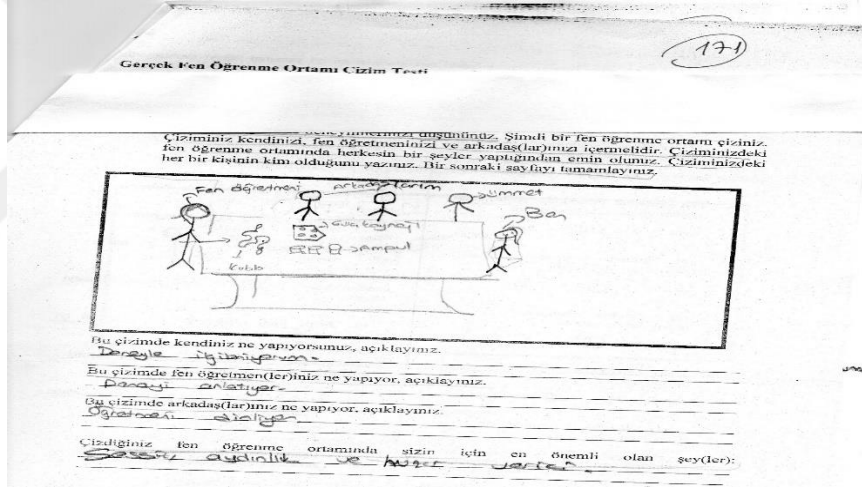 171
Gerçek Fen Öğrenme Ortamı Çizim Testi
düşününüz. Şimdi bir fen öğrenme ortamı çiziniz.
Çiziminiz kendinizi, fen öğretmeninizi ve arkadaş(lar)ınızı içermelidir. Çiziminizdeki
fen öğrenme ortamında herkesin bir şeyler yaptığından emin olunuz. Çiziminizdeki
her bir kişinin kim olduğunu yazınız. Bir sonraki sayfayı tamamlayınız.
Fen öğretmeni arkadaşlarım ümmet
Ben
Güç kaynağı
ampul
Kablo
Bu çizimde kendiniz ne yapıyorsunuz, açıklayınız.
Deneyle ilgileniyorum.
Bu çizimde fen öğretmen(ler)iniz ne yapıyor, açıklayınız.
Deneyi anlatıyor.
Bu çizimde arkadaş(lar)ınız ne yapıyor, açıklayınız.
Öğretmeni dinliyor
Çizdiğiniz fen öğrenme ortamında sizin için en önemli olan şey(ler):
Sessiz aydınlık ve huzur verici.